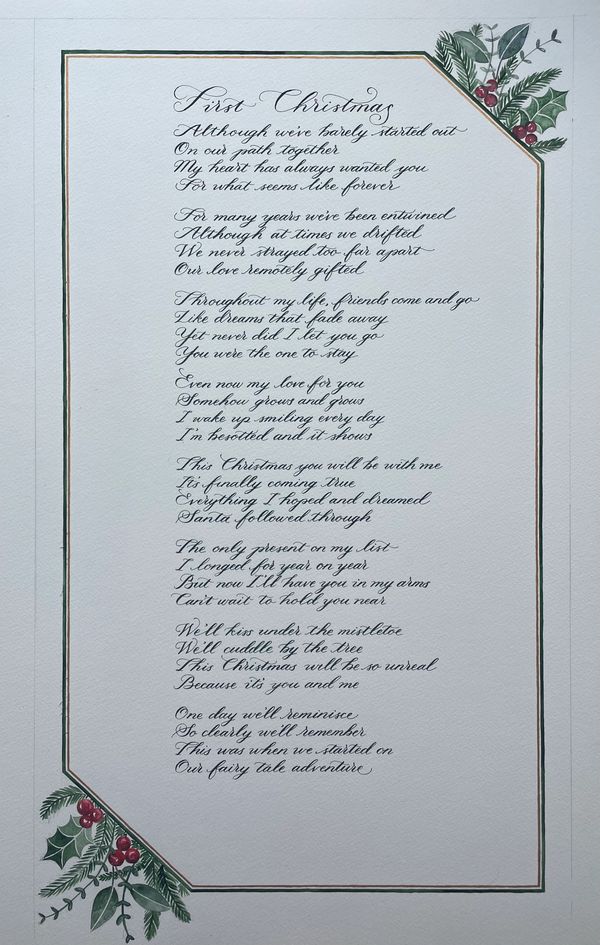 First Christmas
Although we've barely started out
On our path together
My heart has always wanted you
For what seems like forever
For many years we've been entwined
Although at times we drifted
We never strayed too far apart
Our love remotely gifted
Throughout my life, friends come and go
Like dreams that fade away
Yet never did I let you go
You were the one to stay
Even now my love for you
Somehow grows and grows
I wake up smiling every day
I'm besotted and it shows
This Christmas you will be with me
It's finally coming true
Everything I hoped and dreamed
Santa followed through
The only present on my list
I longed for year on year
But now I'll have you in my arms
Can't wait to hold you near
We'll kiss under the mistletoe
We'll cuddle by the tree
This Christmas will be so unreal
Because it's you and me
One day we'll reminisce
So clearly we'll remember
This was when we started on
Our fairy tale adventure